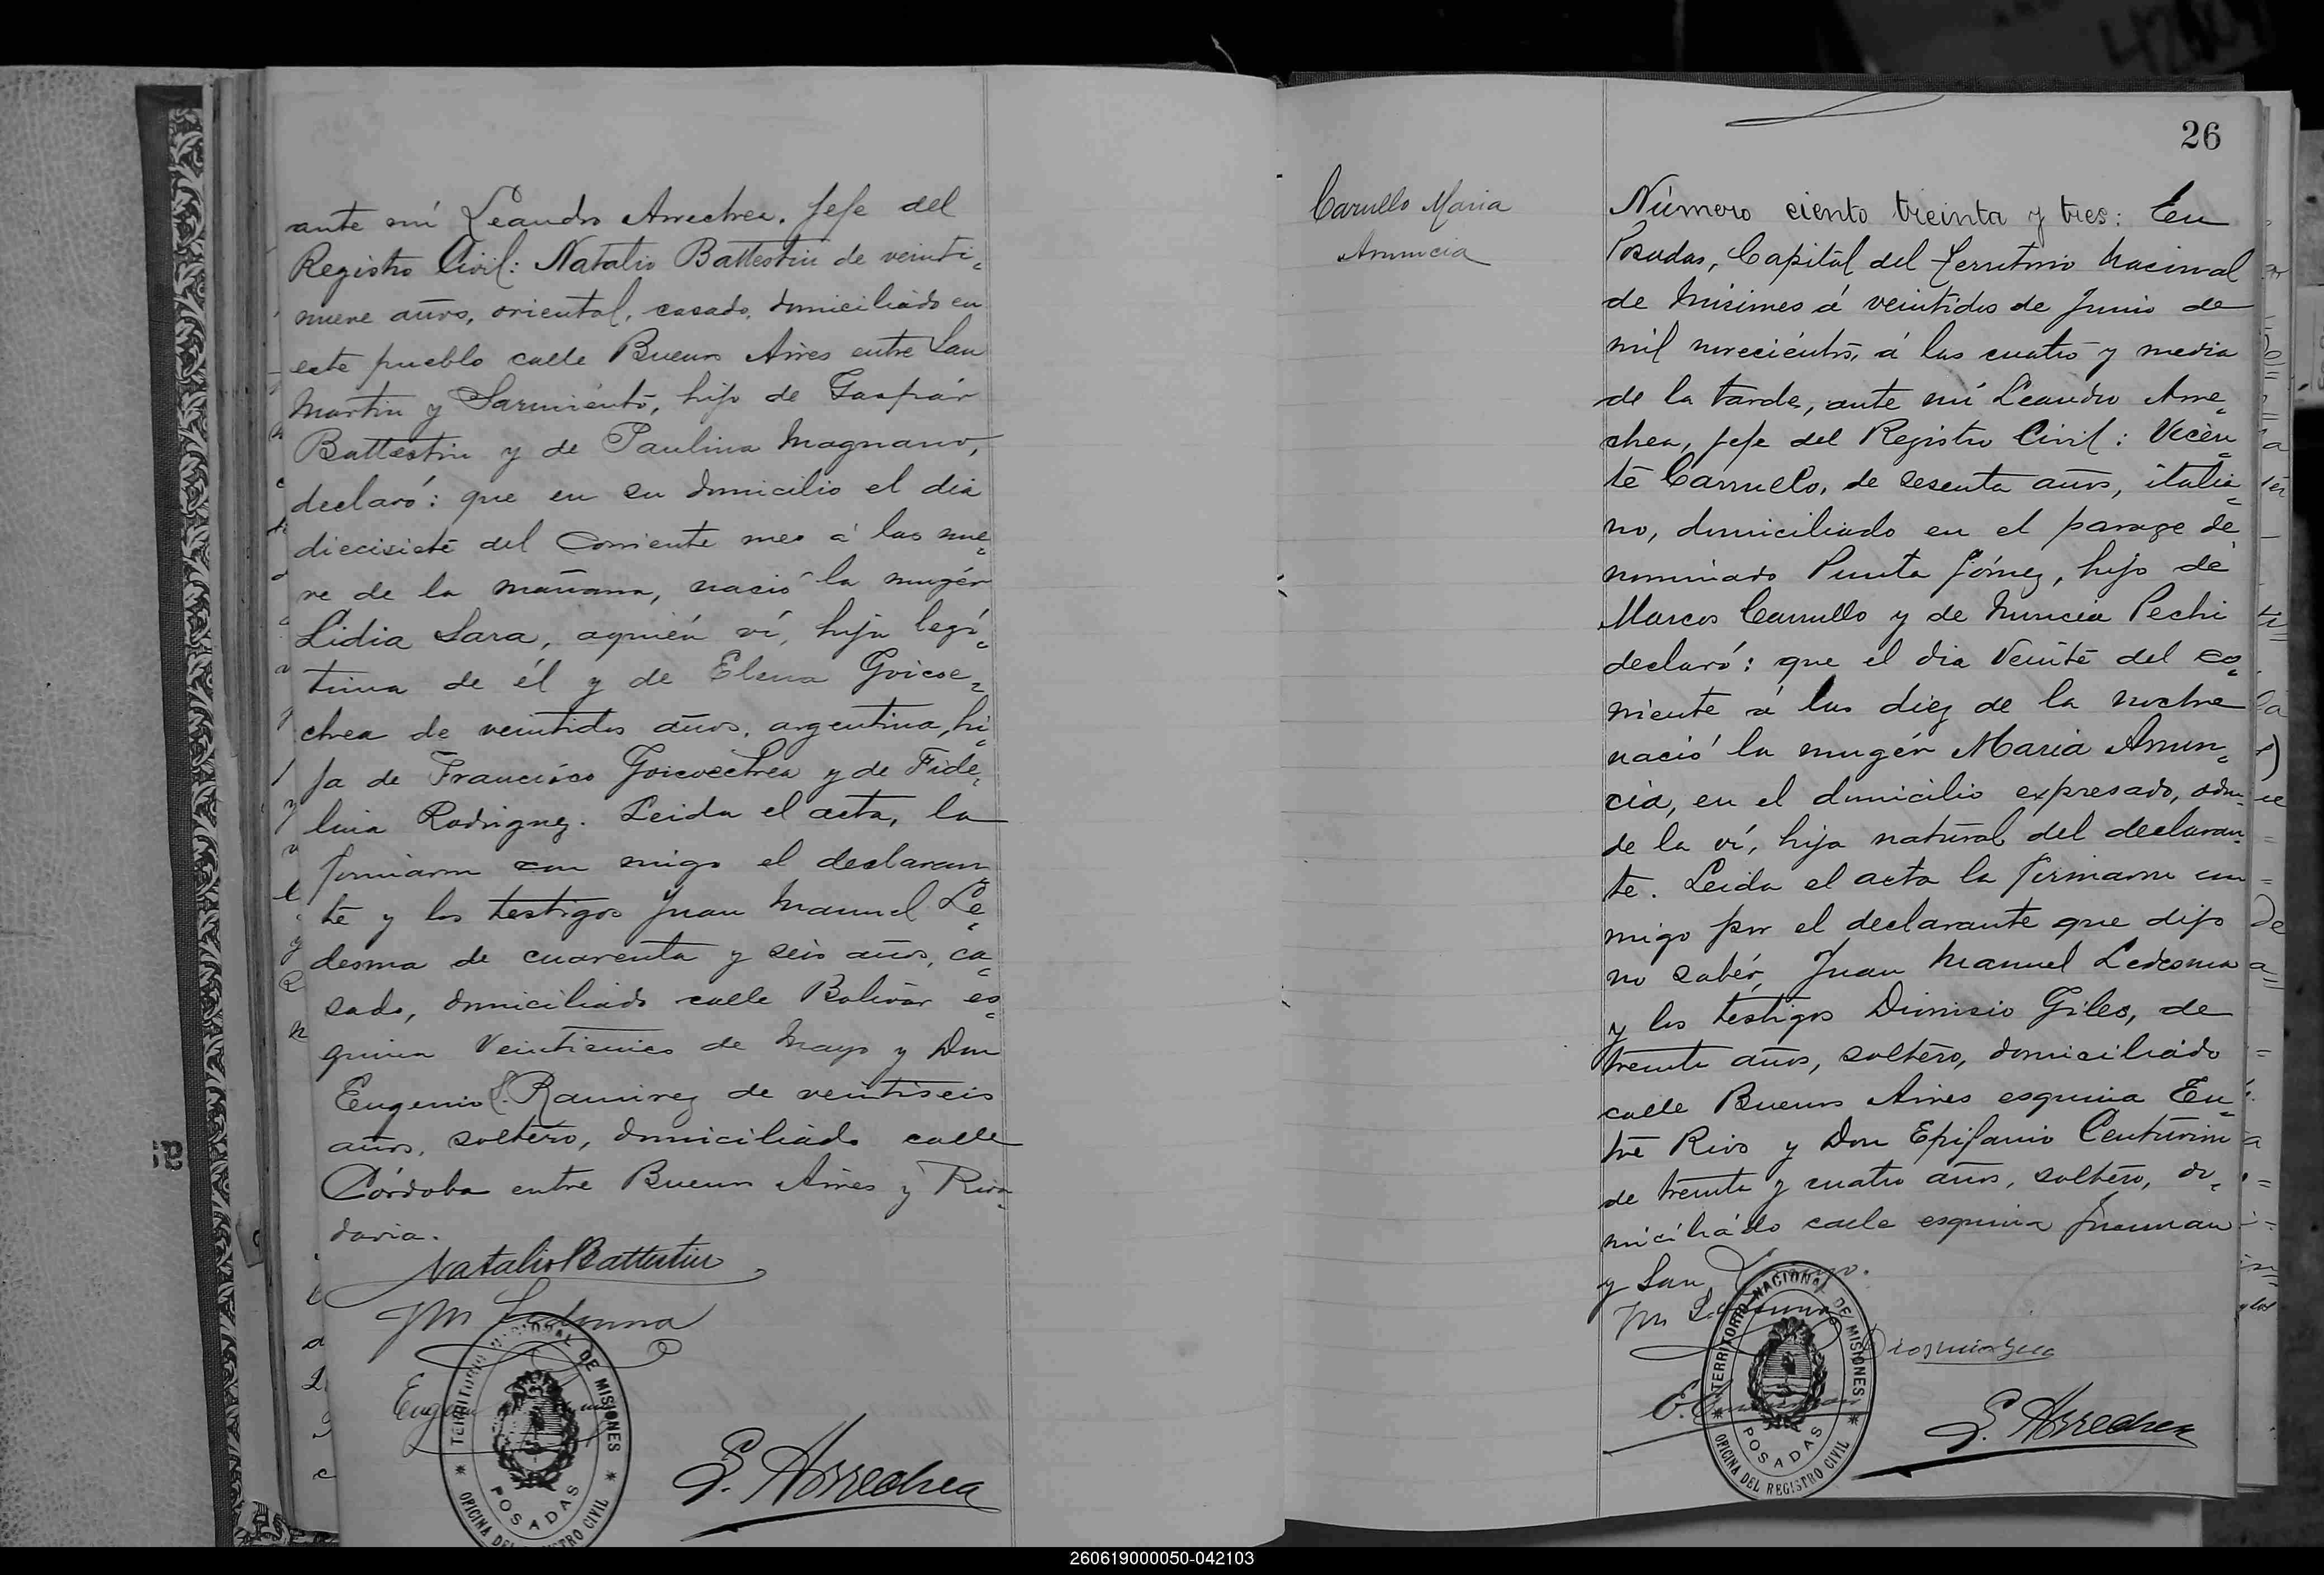 ante mí Leandro Arrechea, Jefe del
Registro Civil: Natalio Battestin de veinti=
nueve años, oriental, casado, domiciliado en
este pueblo calle Buenos Aires entre San
Martin y Sarmiento, hijo de Gaspár
Battestin y de Paulina Magnano,
declaró: que en su domicilio el dia
diecisiete del corriente mes á las nue=
ve de la mañana, nació la mugér
Lidia Sara, aquién ví, hija legí=
tima de él y de Elena Goicoe=
chea de veintidos años, argentina, hi=
ja de Francisco Goicoechea y de Fide=
lina Rodriguez. Leida el acta, la
firmaron con migo el declaran=
te y los testigos Juan Manuel Le=
desma de cuarenta y seis años, ca=
sado, domiciliado calle Bolivar es=
quina Veinticinco de Mayo y Don
Eugenio L. Ramirez de veintiseis
años, soltero, domiciliado calle
Córdoba entre Buenos Aires y Riva=
davia.
Natalio Battestin
JM Ledesma
L. Arrechea
TERRITORIO NACIONAL DE MISIONES
POSADAS
OFICINA DEL REGISTRO CIVIL
26
Carullo Maria
Anuncia
Número ciento treinta y tres: En
Posadas, Capital del Territorio Nacional
de Misiones á veintidos de Junio de
mil novecientos, á las cuatro y media
de la tarde, ante mí Leandro Arre=
chea, Jefe del Registro Civil: Vicen=
te Carrullo, de sesenta años, italia=
no, domiciliado en el parage de=
nominado Punta Gómez, hijo de
Marcos Carrullo y de Nuncia Pechi
declaró: que el dia veinte del co=
rriente á las diez de la noche
nació la mugér Maria Anun=
cia, en el domicilio expresado, don=
de la ví, hija natural del declaran=
te. Leida el acta la firmaron con
migo por el declarante que dijo
no sabér, Juan Manuel Ledesma
y los testigos Dionisio Giles, de
treinta años, soltero, domiciliado
calle Buenos Aires esquina En=
tre Rios y Don Epifanio Centurion
de treinta y cuatro años, soltero, do=
miciliado calle esquina Tucuman
y San
JM Ledesma
L. Arrechea
TERRITORIO NACIONAL DE MISIONES
POSADAS
OFICINA DEL REGISTRO CIVIL
260619000050-042103